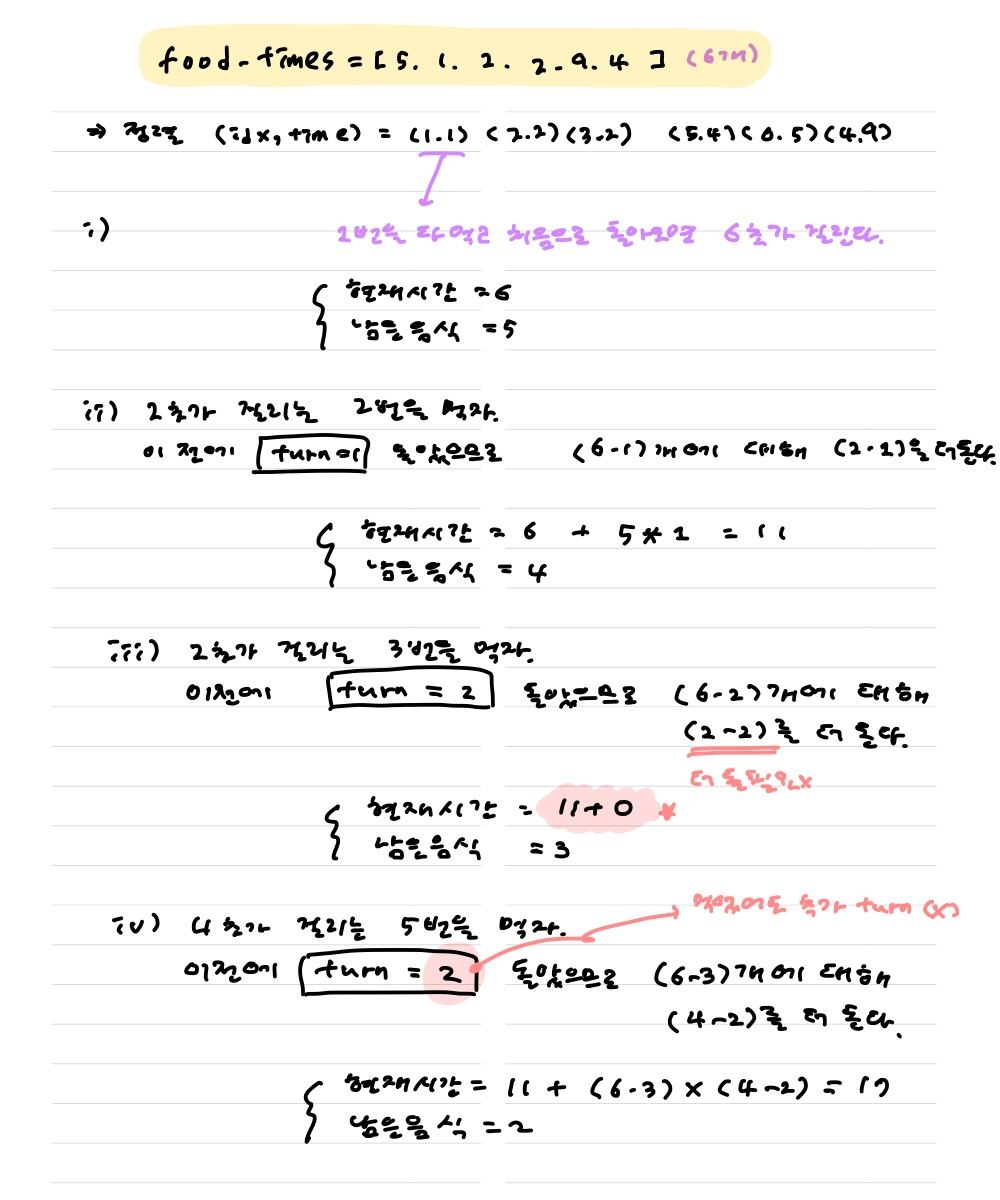 food-times = [5. 1. 2. 2. 9. 4] (6개)
→ 정렬 (idx, time) = (1.1) (2.2)(3.2) (5.4)(0.5)(4.9)
i) 2번을 다 먹고 처음으로 돌아오면 6초가 걸린다.
현재시간 = 6
남은음식 = 5
ii) 2초가 걸리는 2번을 먹자.
이전에 turn이 돌았으므로 (6-1)개에 대해 (2-1)을 더돈다.
현재시간 = 6 + 5*1 = 11
남은음식 = 4
iii) 2초가 걸리는 3번을 먹자.
이전에 turn = 2 돌았으므로 (6-2)개에 대해
(2-2)를 더 돈다.
더 돌필요x
현재시간 = 11+0 *
남은음식 = 3
먹었어도 추가 turn (x)
iv) 4초가 걸리는 5번을 먹자.
이전에 turn = 2 돌았으므로 (6-3)개에 대해
(4-2)를 더 돈다.
현재시간 = 11 + (6-3) x (4-2) = 17
남은음식 = 2